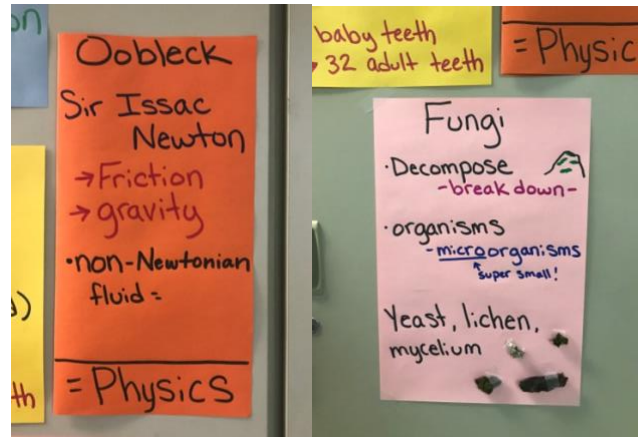 on
Oobleck
Sir Issac
Newton
→Friction
→gravity
•non-Newtonian
fluid =
= Physics
)
th
baby teeth
32 adult teeth
= Physic
Fungi
•Decompose
-break down-
•organisms
-microorganisms
super small!
Yeast, lichen,
mycelium